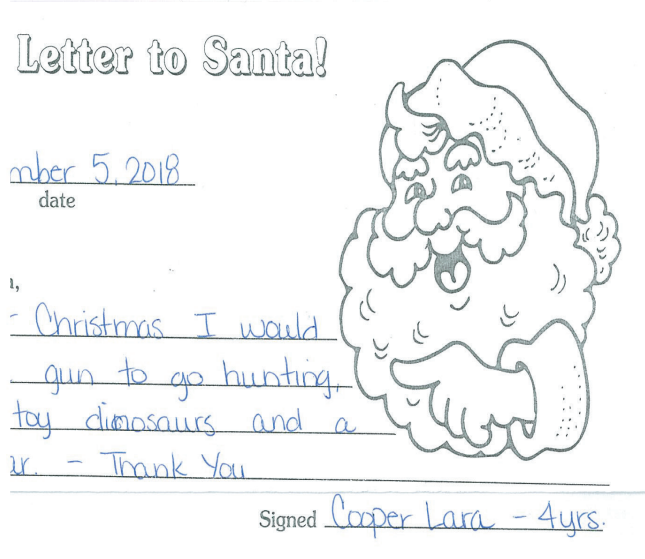 Letter to Santa!
mber 5, 2018
date
,
- Christmas I would
gun to go hunting,
toy dinosaurs and a
r. - Thank You
Signed Cooper Lara - 4yrs.